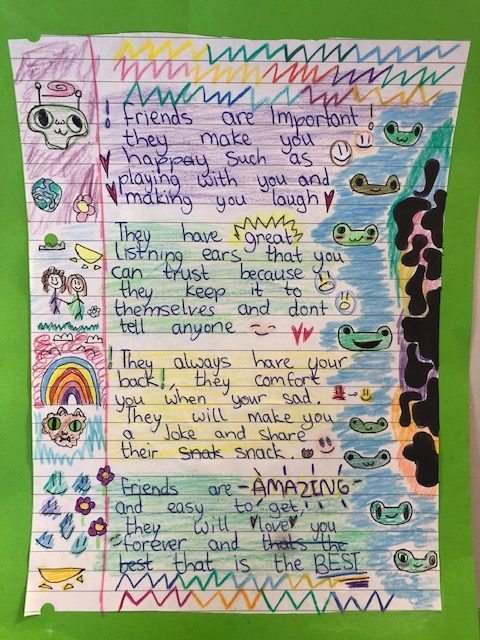 ! Friends are Important !
they make you
happay such as
playing with you and
making you laugh
They have great
listning ears that you
can trust because
they keep it to
themselves and dont
tell anyone
! They always have your
back!, they comfort
you when your sad.
They will make you
a Joke and share
their snak snack.
Friends are AMAZING
and easy to get,
they will love you
forever and thats the
best that is the BEST